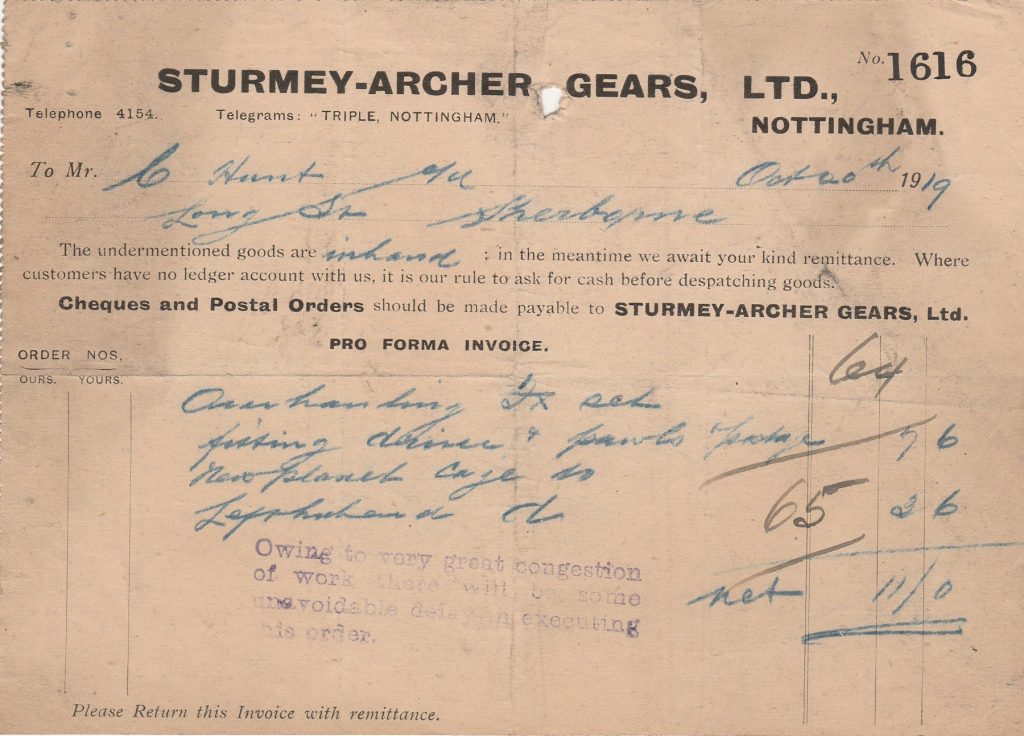 No. 1616
STURMEY-ARCHER GEARS, LTD.,
Telephone 4154. Telegrams: "TRIPLE, NOTTINGHAM."
NOTTINGHAM.
To Mr. C Hunt Oct 20th 1919
Long St Sherborne
The undermentioned goods are in hand ; in the meantime we await your kind remittance. Where
customers have no ledger account with us, it is our rule to ask for cash before despatching goods.
Cheques and Postal Orders should be made payable to STURMEY-ARCHER GEARS, Ltd.
PRO FORMA INVOICE.
ORDER NOS.
OURS. YOURS.
64
Overhauling set
fitting & pawls 7 6
New planet cage to
65 2 6
d
Owing to very great congestion
of work there will be some
unavoidable delay in executing
this order.
net 11/0
Please Return this Invoice with remittance.